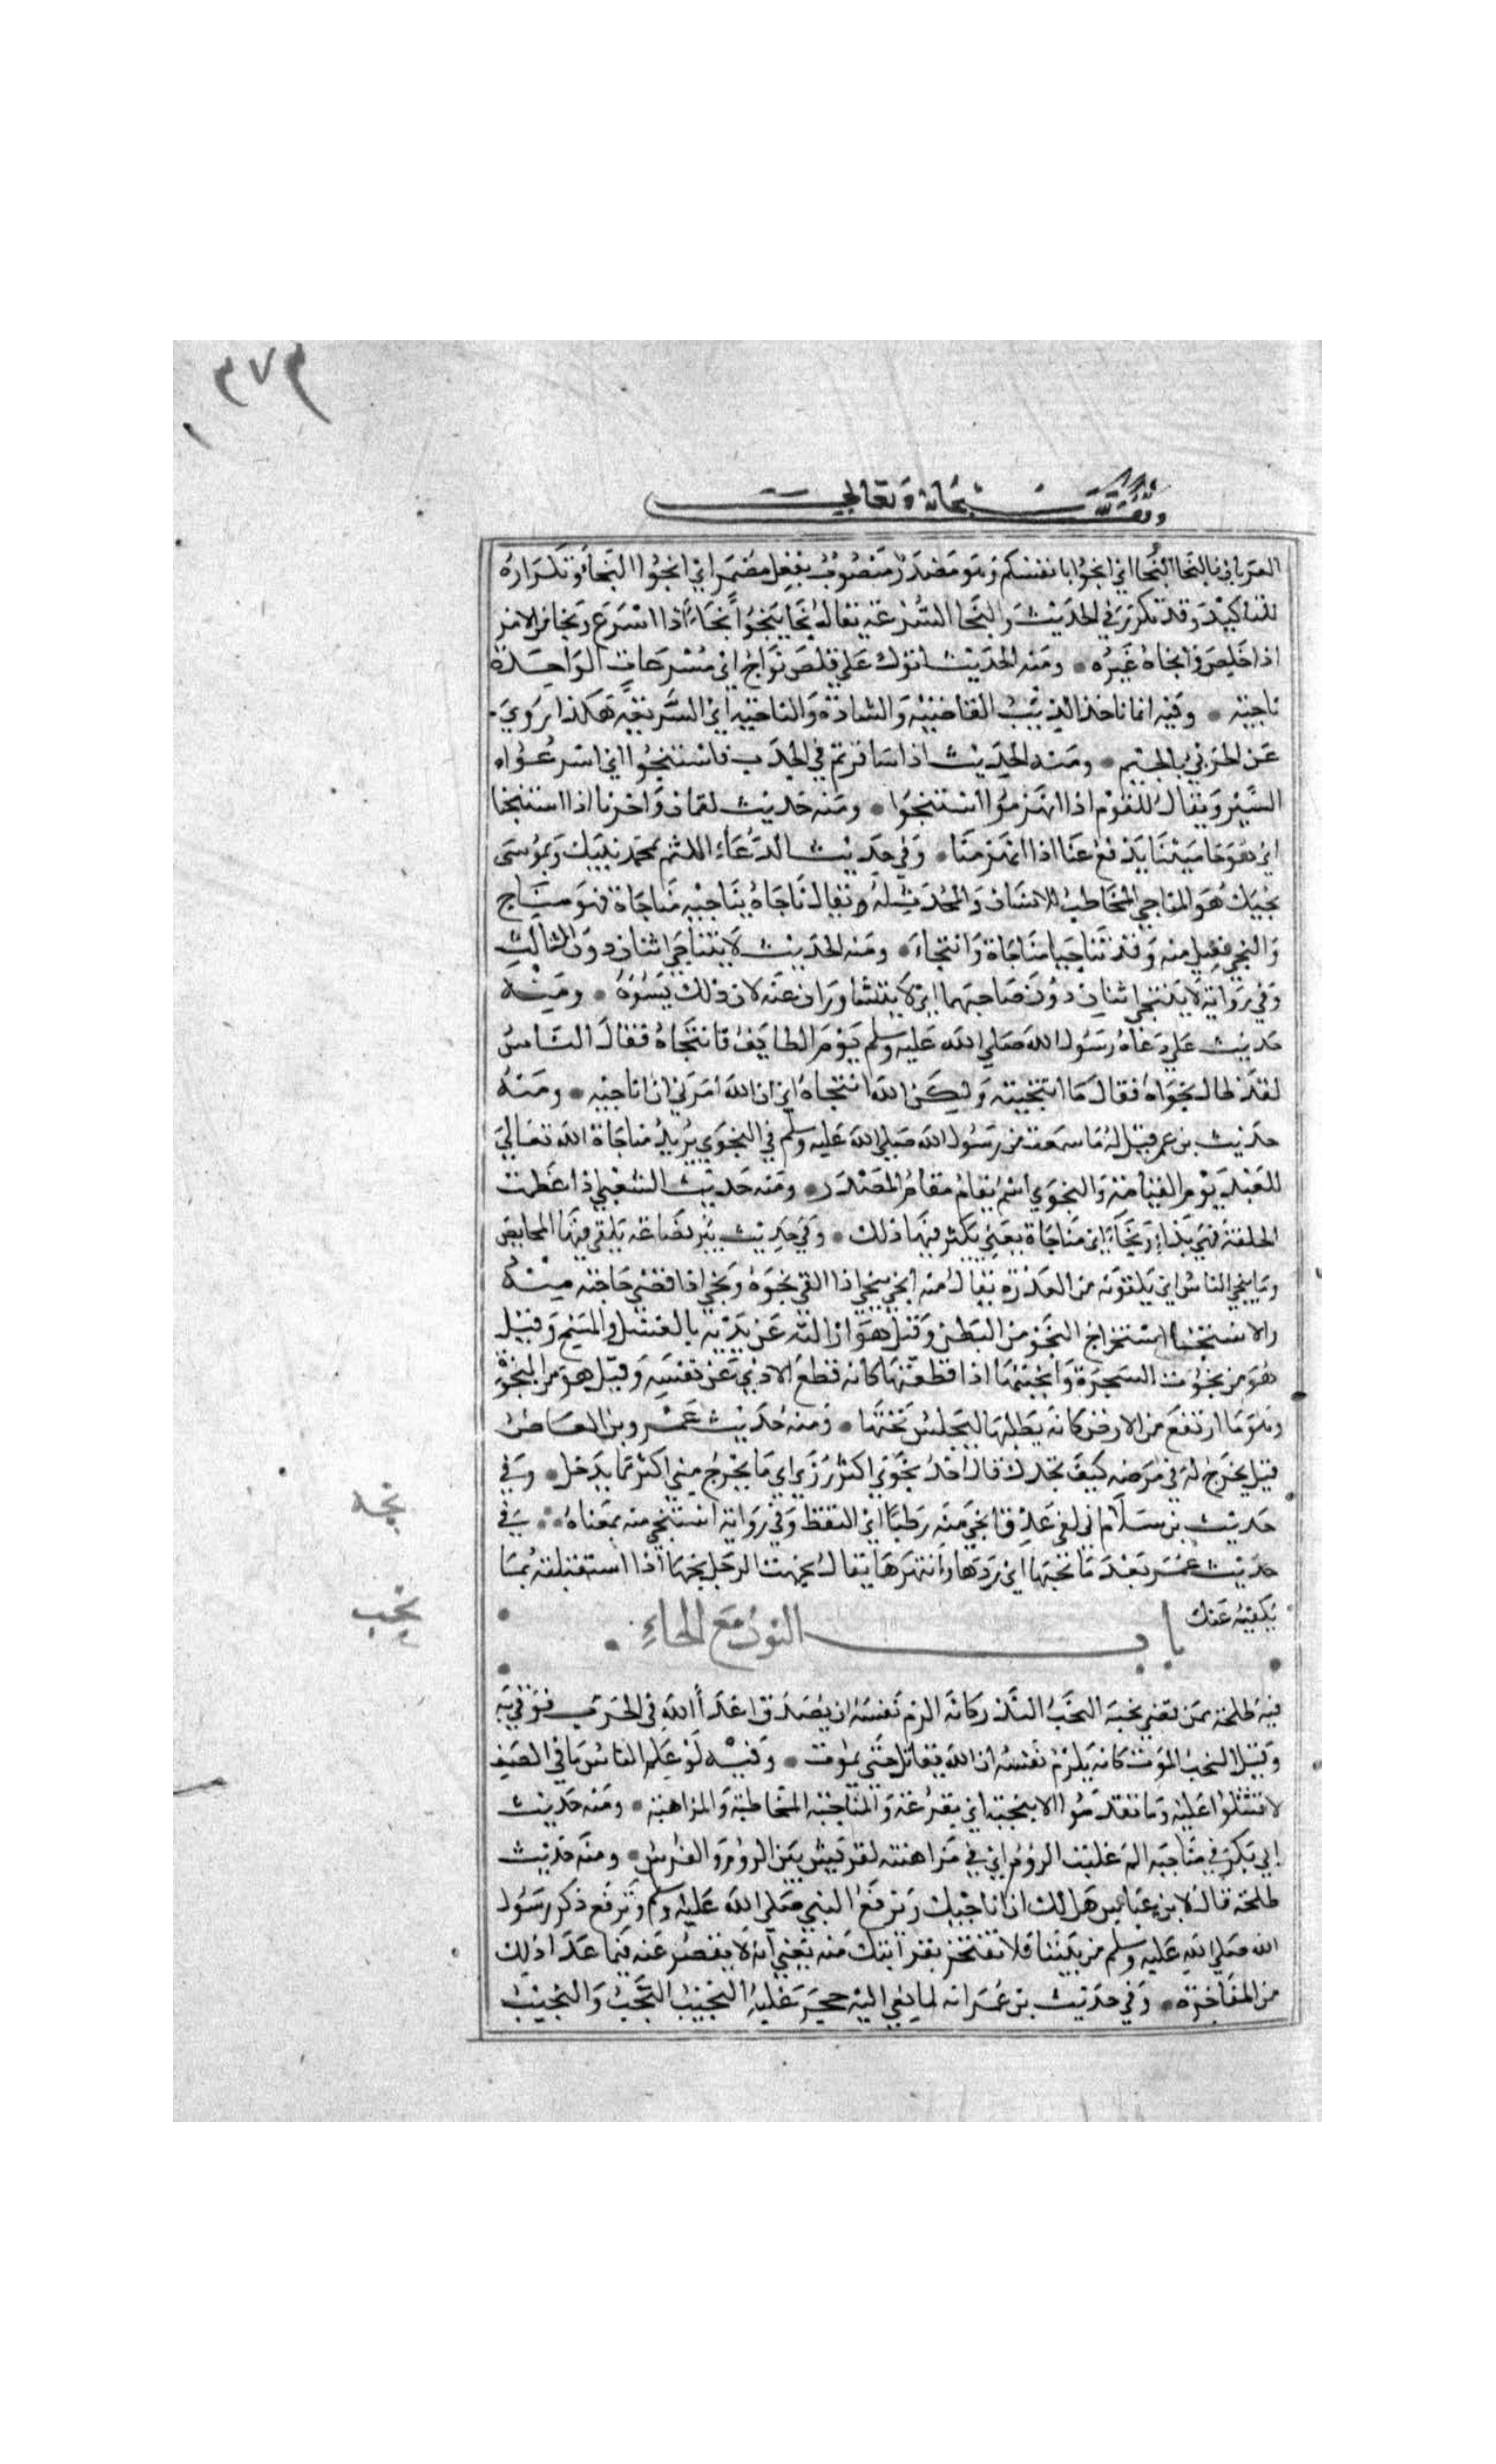 ٣٧٣
وقف لله سبحانه وتعالى
العريان فالنجا النجا اي انجوا بانفسكم وهو مصدر منصوب بفعل مضمر اي انجوا النجا وتكراره
للتاكيد وقد تكرر في الحديث والنجا السرعة يقال نجا ينجوا نجاء اذا اسرع ونجا من الامر
اذا خلص وانجاه غيره • ومنه الحديث اتوك علي قلص نواج اي مسرعات الواحدة
ناجية • وفيه انما ياخذ الذيب القاصية والشاذة والناجية اي السريعة هكذا يروي
عن الحربي بالجيم • ومنه الحديث اذا سافرتم في الجدب فاستنجوا اي اسرعوا
السير ويقال للقوم اذا انهزموا استنجوا • ومنه حديث لقمان واخرنا اذا استنجنا
اي هو حاميتنا يدفع عنا اذا انهزمنا • وفي حديث الدعاء اللهم بمحمد نبيك وبموسى
نجيك هو المناجي المخاطب للانسان والمحدث له ويقال ناجاه يناجيه مناجاة فهو مناج
والنجي فعيل منه وقد تناجيا مناجاة وانتجاء • ومنه الحديث لا يتناجى اثنان دون الثالث
وفي رواية لا ينتجي اثنان دون صاحبهما اي لا يتشاوران عنه لان ذلك يسوه • ومنه
حديث علي دعاه رسول الله صلي الله عليه وسلم يوم الطايف فانتجاه فقال الناس
لقد طال نجواه فقال ما انتجيته ولكن الله انتجاه اي ان الله امرني ان اناجيه • ومنه
حديث بن عمر قيل له ما سمعت من رسول الله صلي الله عليه وسلم في النجوي يريد مناجاة الله تعالي
للعبد يوم القيامة والنجوي اسم يقام مقام المصدر • ومنه حديث الشعبي اذا عظمت
الحلقة فهي بذاء ونجاء اي مناجاة يعني يكثر فيها ذلك • وفي حديث بير بضاعة يلقى فيها المحايض
وما ينجي الناس اي يلقونه من العذرة يقال منه انجى ينجي اذا القى نجوه ونجى اذا قضى حاجته منه
والاستنجا استخراج النجو من البطن وقيل هو ازالته عن بدنه بالغسل والمسح وقيل
هو من نجوت الشجرة وانجيتها اذا قطعتها كانه قطع الاذى عن نفسه وقيل هو من النجوة
وهو ما ارتفع من الارض كانه يطلبها ليجلس تحتها • ومنه حديث عمرو بن العاص
قيل له في مرضه كيف تجدك قال اجد نجوي اكثر رزي اي ما يخرج مني اكثر مما يدخل • وفي
حديث بن سلام اني لفي عذق انجي منه رطبا اي التقط وفي رواية استنجي منه بمعناه • في
حديث عمر بعد ما نجهها اي ردها وانتهرها يقال نجهت الرجل نجها اذا استقبلته بما
يكفيه عنك
باب النون مع الحاء
فيه طلحة ممن قضي نحبه النحب النذر كانه الزم نفسه ان يصدق اعداء الله في الحرب فوفي به
وقيل النحب الموت كانه يلزم نفسه ان الله يقاتل حتي يموت • وفيه لو علم الناس ما في الصف
لاقتتلوا عليه وما تقدموا الا بنحبة اي بقرعة والمناحبة المخاطبة والمراهنة • ومنه حديث
ابي بكر في مناحبة الم غلبت الروم اي في مراهنته لقريش بين الروم والفرس • ومنه حديث
طلحة قال لابن عباس هل لك ان اناحبك وترفع النبي صلي الله عليه وسلم وترفع ذكر رسول
الله صلي الله عليه وسلم من بيننا فلا تفتخر بقرابتك منه يعني انه لا يقصر عنه فيما عدا ذلك
من المفاخرة • وفي حديث بن عمر انه لما نعي اليه حجر غلبه النحيب النحب والنحيب
نجه
نحب